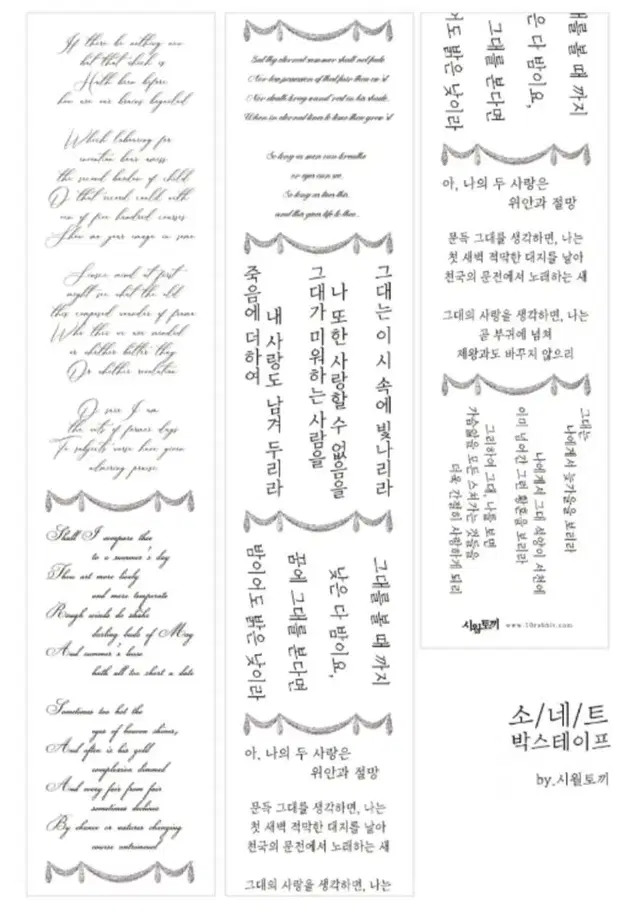 If there be nothing new
but that which is
Hath been before
how are our brains beguiled
Which labouring for
invention bear amiss
the second burden of child
O that record could with
une of five hundred courses
Show me your image in some
Since mind at first
might see what the old
this composed wonder of frame
Whe ther we are mended
or whether better they
Or whether revolution
O sure I am
the wits of former days
To subjects worse have given
admiring praise
Shall I compare thee
to a summer's day
Thou art more lovely
and more temperate
Rough winds do shake
darling buds of May
And summer's lease
hath all too short a date
Sometimes too hot the
eyes of heaven shines,
And often is his gold
complexion dimmed
And every fair from fair
sometimes declines
By chance or natures changing
course untrimmed
But thy eternal summer shall not fade
Nor lose possession of that fair thou ow'st
Nor death brag
When in eternal lines to time thou grow'st
So long as men can breathe
or eyes can see,
So long as lives this,
and this gives life to thee.
그대는 이 시 속에 빛나리라
나 또한 사랑할 수 없음을
그대가 미워하는 사람을
내 사랑도 남겨 두리라
죽음에 더하여
그대를 볼 때 까지
낮은 다 밤이요,
꿈에 그대를 본다면
밤이어도 밝은 낮이라
아, 나의 두 사랑은
위안과 절망
문득 그대를 생각하면, 나는
첫 새벽 적막한 대지를 날아
천국의 문전에서 노래하는 새
그대의 사랑을 생각하면, 나는
를 볼 때 까지
은 다 밤이요,
그대를 본다면
도 밝은 낮이라
아, 나의 두 사랑은
위안과 절망
문득 그대를 생각하면, 나는
첫 새벽 적막한 대지를 날아
천국의 문전에서 노래하는 새
그대의 사랑을 생각하면, 나는
곧 부귀에 넘쳐
제왕과도 바꾸지 않으리
그대는
나에게서 늦가을을 보리라
나에게서 그대 석양이 서천에
이미 넘어간 그런 황혼을 보리라
그리하여 그대, 나를 보면
가슴앓을 모든 스쳐가는 것들을
더욱 간절히 사랑하게 되리
시월토끼 www.10rabbit.com
소/네/트
박스테이프
by.시월토끼